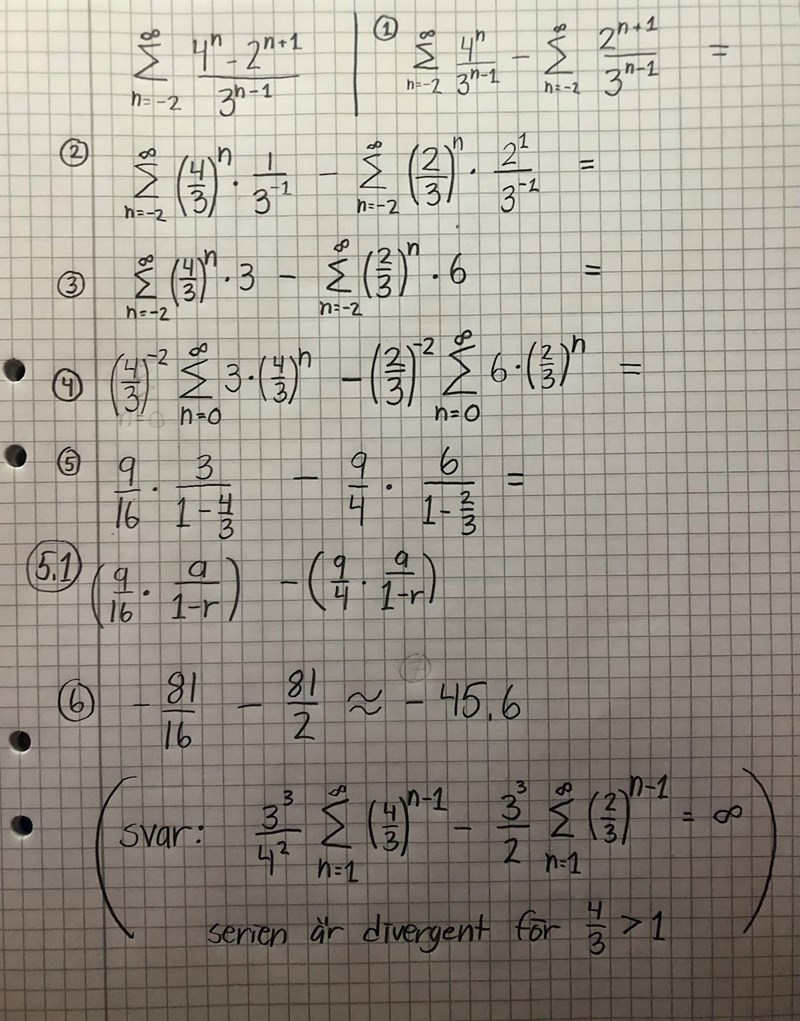 ∑_{n=-2}^{∞} (4^n - 2^{n+1})/3^{n-1} | ① ∑_{n=-2}^{∞} 4^n/3^{n-1} - ∑_{n=-2}^{∞} 2^{n+1}/3^{n-1} =
② ∑_{n=-2}^{∞} (4/3)^n · 1/3^{-1} - ∑_{n=-2}^{∞} (2/3)^n · 2^1/3^{-1} =
③ ∑_{n=-2}^{∞} (4/3)^n · 3 - ∑_{n=-2}^{∞} (2/3)^n · 6 =
④ (4/3)^{-2} ∑_{n=0}^{∞} 3·(4/3)^n - (2/3)^{-2} ∑_{n=0}^{∞} 6·(2/3)^n =
⑤ 9/16 · 3/(1-4/3) - 9/4 · 6/(1-2/3) =
(5.1) (9/16 · a/(1-r)) - (9/4 · a/(1-r))
⑥ -81/16 - 81/2 ≈ -45.6
(svar: 3^3/4^2 ∑_{n=1}^{∞} (4/3)^{n-1} - 3^3/2 ∑_{n=1}^{∞} (2/3)^{n-1} = ∞
serien är divergent för 4/3 > 1)